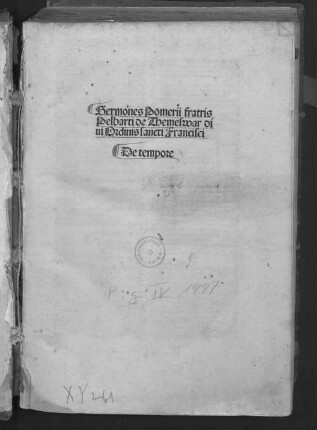 Sermones Pomerii fratris
Pelbarti de Themeswar di
ui Ordinis sancti Francisci
De tempore
IV 1497
XY 261